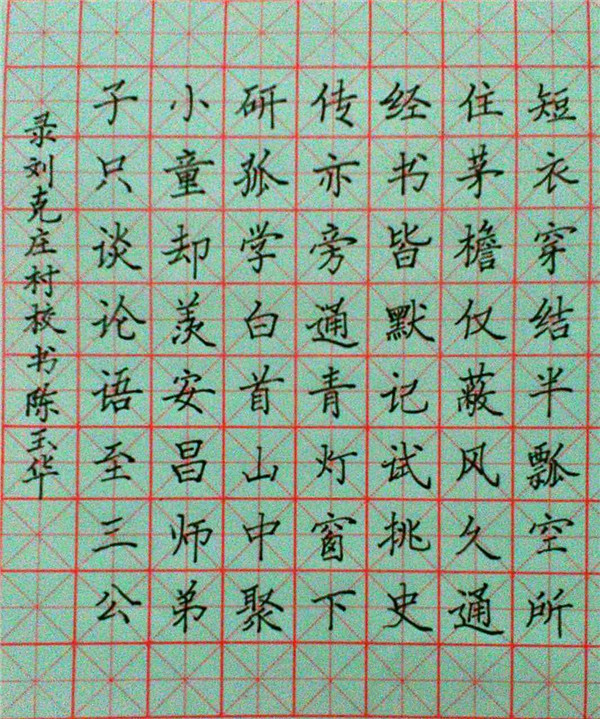 短衣穿结半瓢空所
住茅檐仅蔽风久通
经书皆默记试挑史
传亦旁通青灯窗下
研孤学白首山中聚
小童却羡安昌师弟
子只谈论语至三公
录刘克庄村校书陈玉华